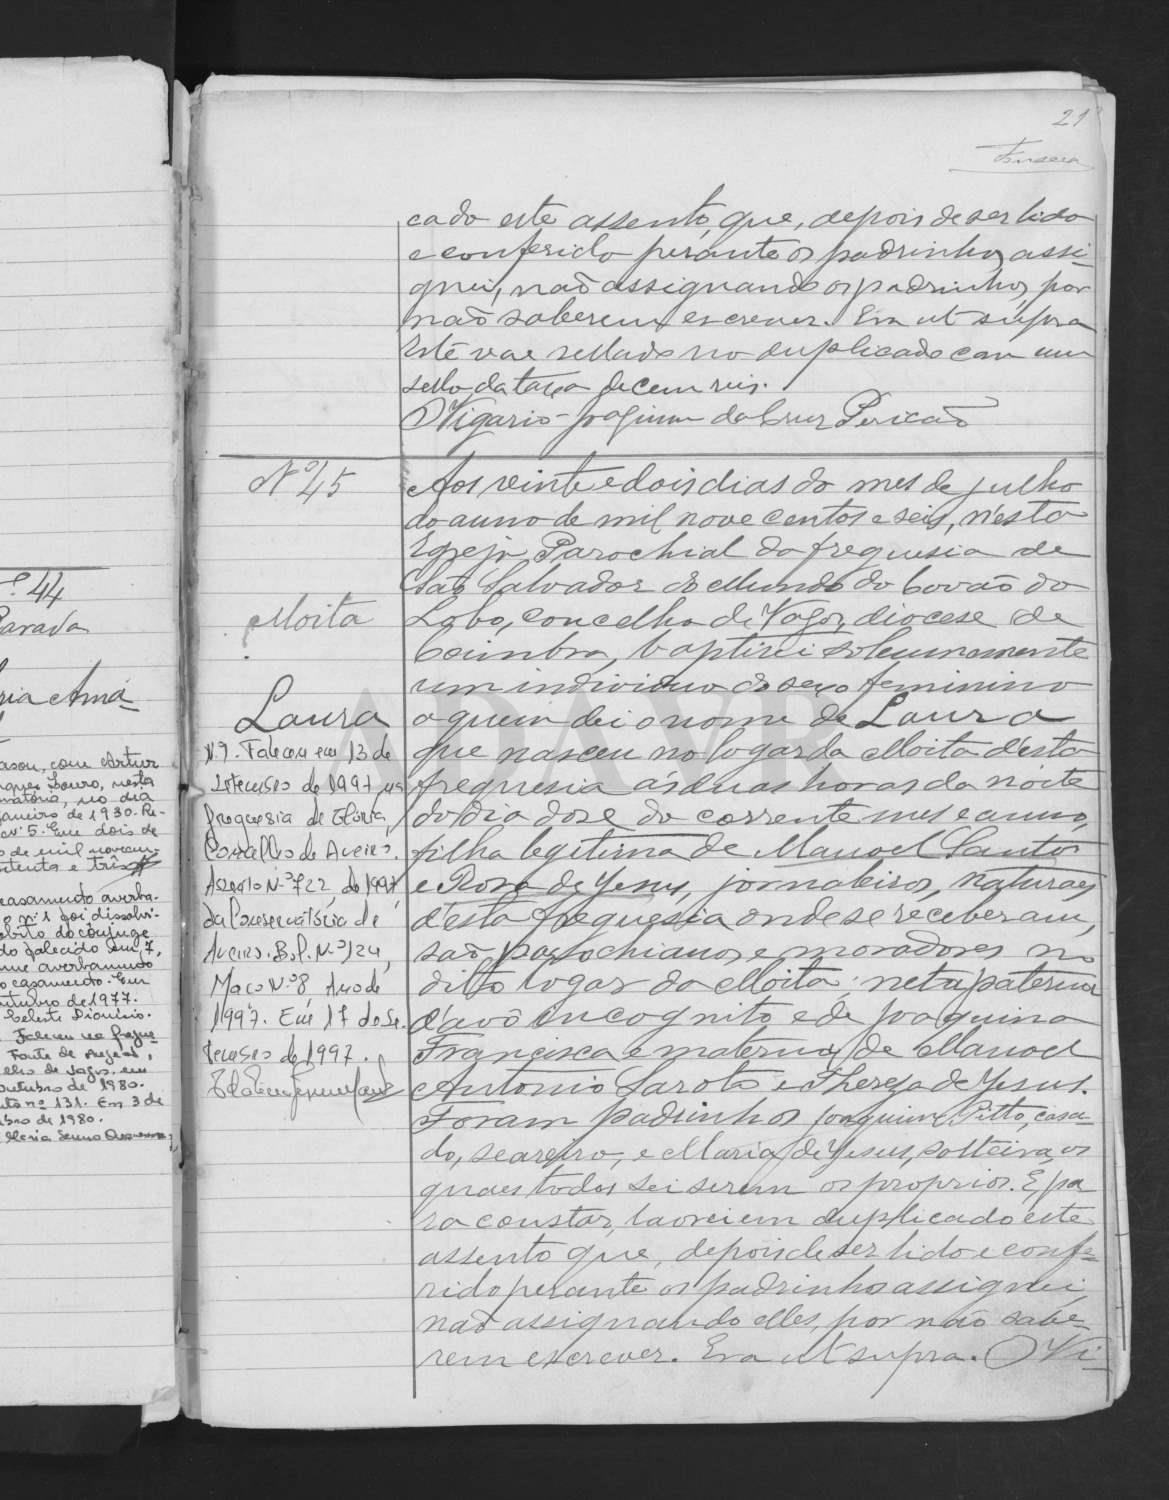 21
Fonseca
cado este assento, que, depois de ser lido
e conferido perante os padrinhos, assi-
gnei, não assignando os padrinhos, por
não saberem escrever. Era ut supra
Este vae sellado no duplicado com um
sello da taxa de cem reis.
O Vigario - Joaquim da Cruz Pericão
Nº 45
Moita
Laura
N.º 1. Faleceu em 13 de
Setembro de 1997, na
freguesia de Glória,
Concelho de Aveiro.
Assento N.º 722, de 1997,
da Conservatória de
Aveiro. Bol. N.º 724,
Maço N.º 8 Ano de
1997. Em 17 de Se-
tembro de 1997.
Aos vinte e dois dias do mes de julho
do anno de mil nove centos e seis, n'esta
Egreja Parochial da freguesia de
São Salvador do Mundo do Covão do
Lobo, concelho de Vagos, diocese de
Coimbra, baptisei solemnemente
um individuo do sexo feminino
a quem dei o nome de Laura
que nasceu no logar da Moita d'esta
freguesia ás duas horas da noite
do dia dose do corrente mes e anno,
filha legitima de Manoel Santos
e Rosa de Jesus, jornaleiros, naturaes
d'esta freguesia onde se receberam,
são parochianos e moradores no
dito logar da Moita; neta paterna
d'avô incognito e de Joaquina
Francisca e materna de Manoel
Antonio Saroto e Thereza de Jesus.
Foram padrinhos Joaquim Pitto, casa-
do, seareiro, e Maria de Jesus, solteira, os
quaes todos sei serem os proprios. E, pa
ra constar, lavrei em duplicado este
assento que, depois de ser lido e confe-
rido perante os padrinhos assignei,
não assignando elles, por não sabe-
rem escrever. Era ut supra. O Vi-
º 44
Parada
ria Amá-
asou, com Artur
gues Louro, nesta
rvatória, no dia
janeiro de 1930. Re-
nº 5. Em dois de
de mil novecen-
tenta e três
casamento averba-
o nº 1 foi dissolvi-
óbito do cônjuge
do falecido em 7,
me averbamento
o casamento. Em
utubro de 1977.
Celeste Dionísio.
Faleceu na fregue-
Fonte de Angeão,
elho de Vagos, em
outubro de 1980.
nto nº 131. Em 3 de
bro de 1980.
ADAVR